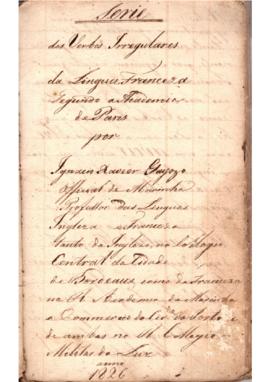 Serie
dos Verbos Irregulares
da Lingua Franceza
Segundo a Academia
de Paris
por
Ignacio Xavier Gayozo
Official de Marinha
Professor das Linguas
Ingleza e Franceza
tanto da Ingleza, no Collegio
Central da Cidade
de Bordeaux, como da Franceza
na Academia da Marinha
e Commercio da Cid.e do Porto e
de ambas no Collegio
Militar da Luz
anno
1826